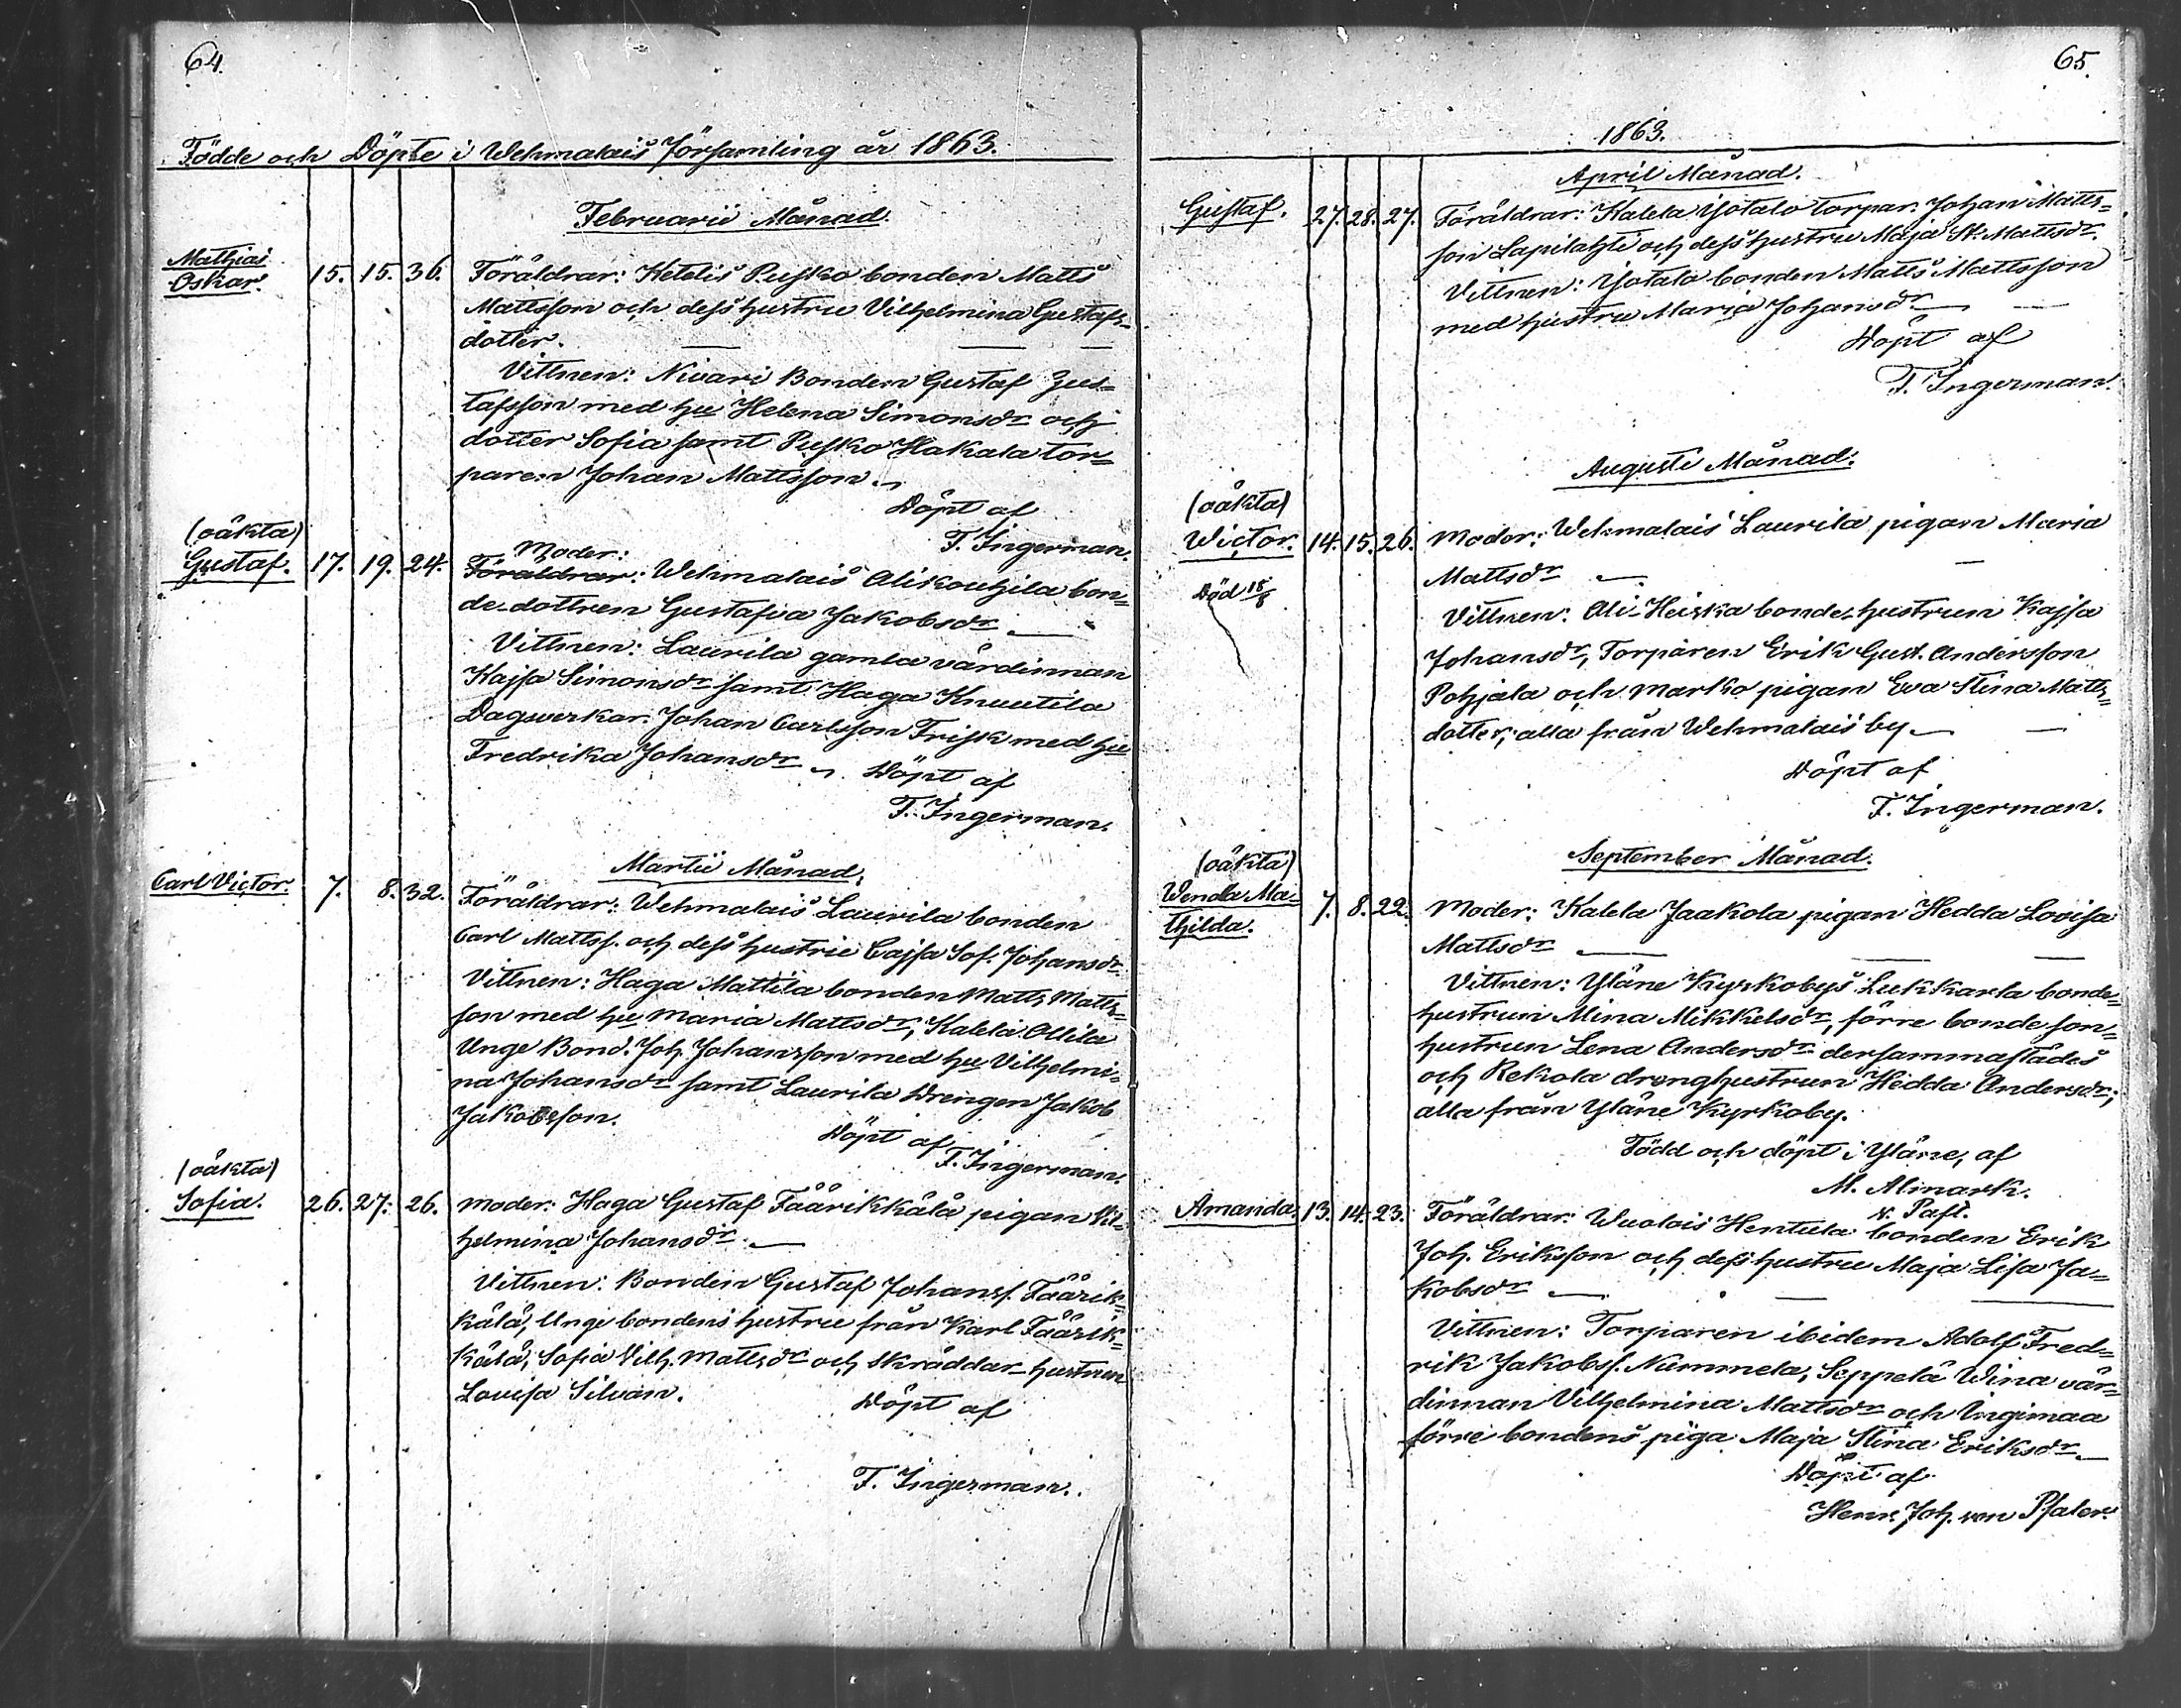 64.
Födde och Döpte i Wehmalais Församling år 1863.
Februarii Månad.
Mathias
Oskar. 15. 15. 36. Föräldrar: Ketelis Pusko bonden Matts
Mattsson och dess hustru Vilhelmina Gustafs=
dotter. —
Vittnen: Nivari Bonden Gustaf Gus=
tafsson med hu Helena Simonsdr och
dotter Sofia samt Pusko Hakala tor=
paren Johan Mattsson.
Döpt af
F. Ingerman.
(oäkta) Moder:
Gustaf. 17. 19. 24. Föräldrar: Wehmalais Alikouhila bon=
de-dottren Gustafva Jakobsdr. —
Vittnen: Laurila gamla värdinnan
Kajsa Simonsdr samt Haga Knuutila
Dagsverkar. Johan Carlsson Frisk med hu
Fredrika Johansdr. Döpt af
F. Ingerman.
Martii Månad.
Carl Victor. 7. 8. 32. Föräldrar: Wehmalais Laurila bonden
Carl Mattss. och dess hustru Cajsa Sof. Johansdr
Vittnen: Haga Mattila bonden Matts Matts=
son med hu Maria Mattsdr, Kalela Ollila
Unge Bond. Joh. Johansson med hu Vilhelmi=
na Johansdr samt Laurila Drengen Jakob
Jakobsson.
Döpt af
F. Ingerman.
(oäkta)
Sofia. 26. 27. 26. Moder: Haga Gustaf Fäärikkälä pigan Vil=
helmina Johansdr. —
Vittnen: Bonden Gustaf Johanss. Fäärik=
kälä, Unge bondens hustru från Karl Fäärik=
kälä, Sofia Vilh. Mattsdr och skräddar-hustrun
Lovisa Silvan.
Döpt af
F. Ingerman.
65.
1863.
April Månad.
Gustaf. 27. 28. 27. Föräldrar: Kalela Yötalo torpar. Johan Matts=
son Lapilahti och dess hustru Maja St. Mattsdr.
Vittnen: Yötalo bonden Matts Mattsson
med hustru Maria Johansdr —
Döpt af
F. Ingerman.
Augusti Månad.
(oäkta)
Victor. 14. 15. 26. Moder: Wehmalais Laurila pigan Maria
Död 18/8 Mattsdr —
Vittnen: Ali-Heiska bonde-hustrun Kajsa
Johansdr, Torparen Erik Gust. Andersson
Pohjala och Marko pigan Eva Stina Matts=
dotter, alla från Wehmalais by. —
Döpt af
F. Ingerman.
September Månad.
(oäkta)
Wenda Ma=
thilda. 7. 8. 22. Moder: Kalela Jaakola pigan Hedda Lovisa
Mattsdr —
Vittnen: Yläne Kyrkobys Lukkarla bonde=
hustrun Mina Mikkelsdr, förre bonde son=
hustrun Lena Andersdr dersammastädes
och Rekola drenghustrun Hedda Andersdr,
alla från Yläne Kyrkoby.
Född och döpt i Yläne, af
M. Almark.
v. Past.
Amanda. 13. 14. 23. Föräldrar: Wuolais Hentula bonden Erik
Joh. Eriksson och dess hustru Maja Lisa Ja=
kobsdr —
Vittnen: Torparen ibidem Adolf Fred=
rik Jakobss. Nummela, Seppelä Wina vär=
dinnan Vilhelmina Mattsdr och Ingimaa
förre bondens piga Maja Stina Eriksdr. —
Döpt af
Henr. Joh. von Pfaler.